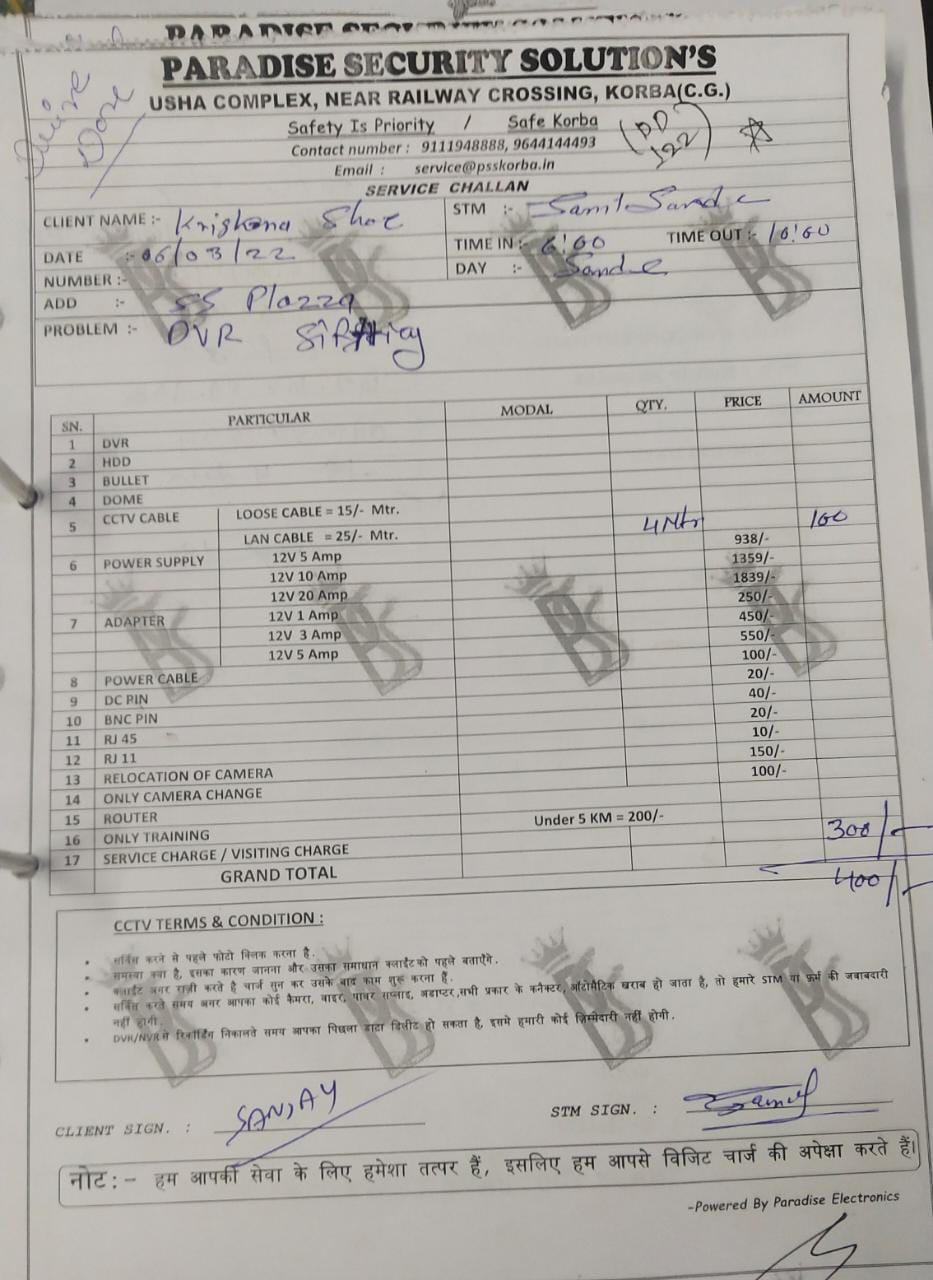 PARADISE SECURITY SOLUTION'S
USHA COMPLEX, NEAR RAILWAY CROSSING, KORBA(C.G.)
Safety Is Priority / Safe Korba
Contact number : 9111948888, 9644144493
Email : service@psskorba.in
SERVICE CHALLAN
Done
CLIENT NAME :- Krishana
STM :-
DATE :- 06/03/22
TIME IN :- 6:00 TIME OUT :- 10:00
NUMBER :-
DAY :-
ADD :- SS Plazza
PROBLEM :- DVR
SN. PARTICULAR MODAL QTY. PRICE AMOUNT
1 DVR
2 HDD
3 BULLET
4 DOME
5 CCTV CABLE LOOSE CABLE = 15/- Mtr.
LAN CABLE = 25/- Mtr. 4 Mtr 100
6 POWER SUPPLY 12V 5 Amp 938/-
12V 10 Amp 1359/-
12V 20 Amp 1839/-
7 ADAPTER 12V 1 Amp 250/-
12V 3 Amp 450/-
12V 5 Amp 550/-
8 POWER CABLE 100/-
9 DC PIN 20/-
10 BNC PIN 40/-
11 RJ 45 20/-
12 RJ 11 10/-
13 RELOCATION OF CAMERA 150/-
14 ONLY CAMERA CHANGE 100/-
15 ROUTER
16 ONLY TRAINING Under 5 KM = 200/-
17 SERVICE CHARGE / VISITING CHARGE 300/-
GRAND TOTAL 400/-
CCTV TERMS & CONDITION :
• सर्विस करने से पहले फोटो क्लिक करना है.
• समस्या क्या है, इसका कारण जानना और उसका समाधान क्लाईंट को पहले बताएँगे.
• क्लाईंट अगर राज़ी करते है चार्ज सुन कर उसके बाद काम शुरू करना हैं.
• सर्विस करते समय अगर आपका कोई कैमरा, वाइर, पावर सप्लाइ, अडाप्टर,सभी प्रकार के कनैक्टर, ऑटोमैटिक खराब हो जाता है, तो हमारे STM या फ़र्म की जवाबदारी
नहीं होगी.
• DVR/NVR से रिकॉर्डिंग निकालते समय आपका पिछला डाटा डिलीट हो सकता है, इसमे हमारी कोई ज़िम्मेदारी नहीं होगी.
CLIENT SIGN. : SANJAY
STM SIGN. :
नोट:- हम आपकी सेवा के लिए हमेशा तत्पर हैं, इसलिए हम आपसे विजिट चार्ज की अपेक्षा करते हैं।
-Powered By Paradise Electronics